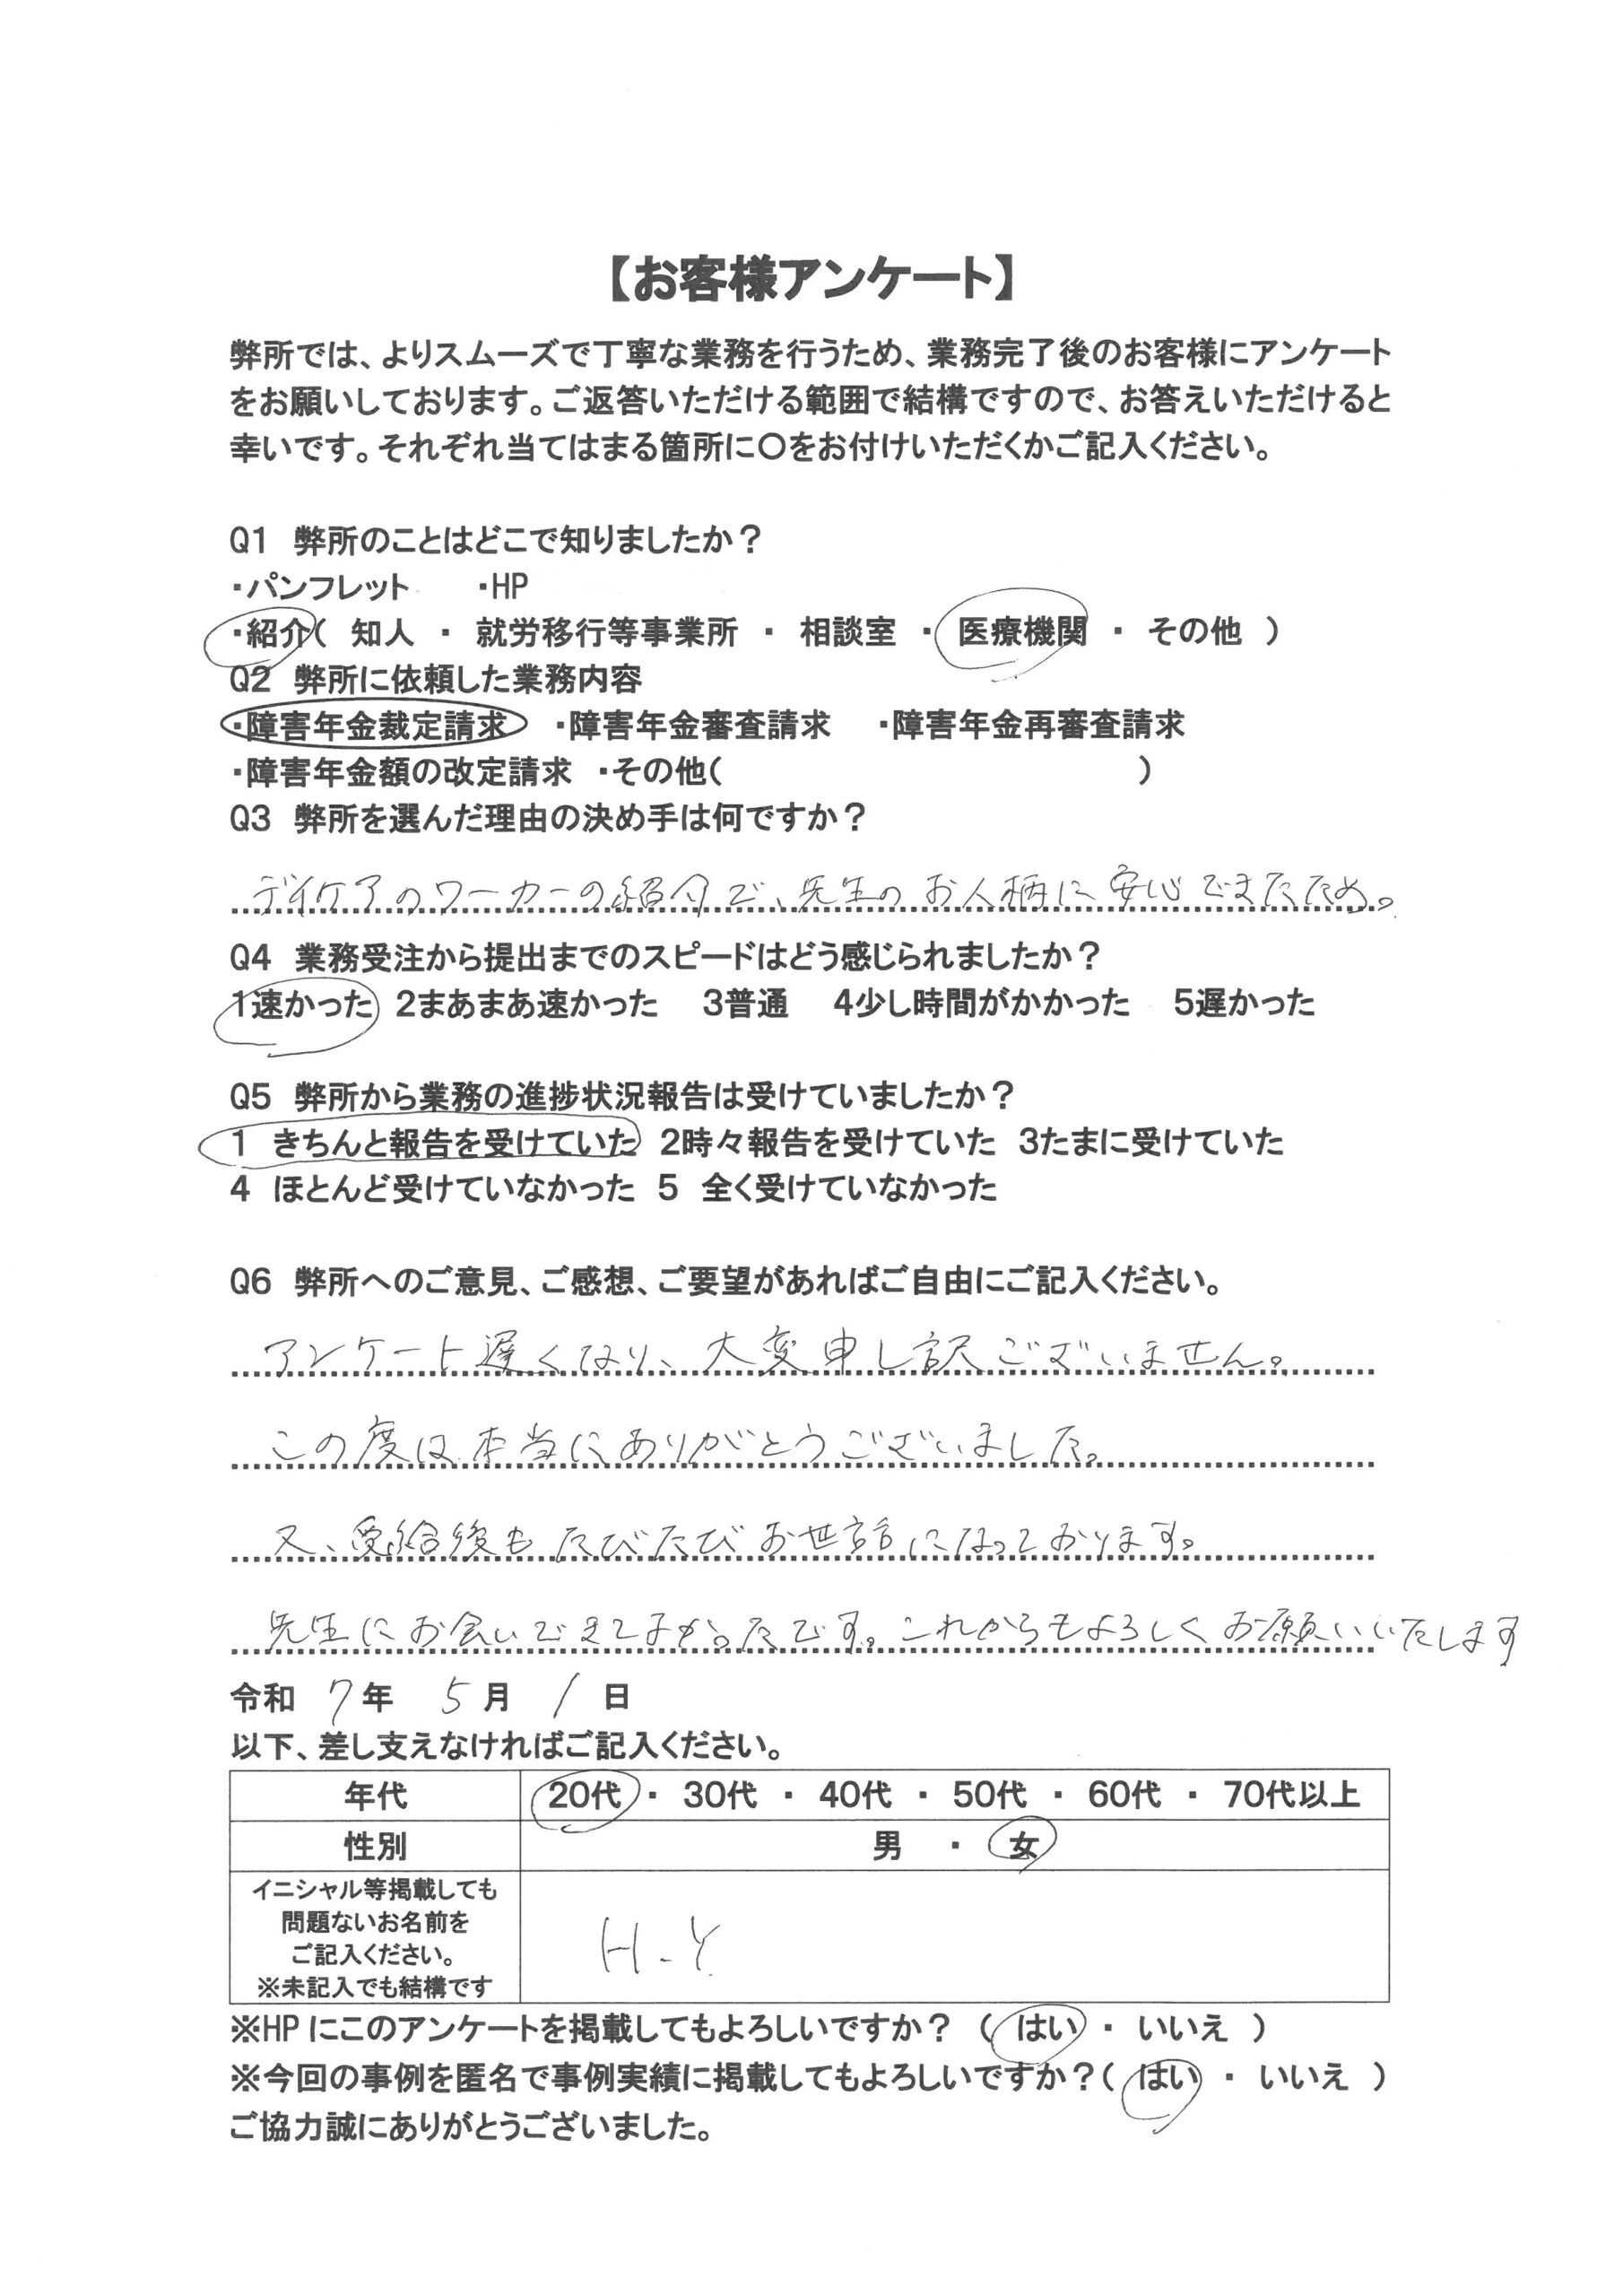 【お客様アンケート】
弊所では、よりスムーズで丁寧な業務を行うため、業務完了後のお客様にアンケート
をお願いしております。ご返答いただける範囲で結構ですので、お答えいただけると
幸いです。それぞれ当てはまる箇所に〇をお付けいただくかご記入ください。
Q1 弊所のことはどこで知りましたか？
・パンフレット ・HP
・紹介( 知人 ・ 就労移行等事業所 ・ 相談室 ・ 医療機関 ・ その他 )
Q2 弊所に依頼した業務内容
・障害年金裁定請求 ・障害年金審査請求 ・障害年金再審査請求
・障害年金額の改定請求 ・その他( )
Q3 弊所を選んだ理由の決め手は何ですか？
デイケアのワーカーの紹介で、先生のお人柄に安心できたため。
Q4 業務受注から提出までのスピードはどう感じられましたか？
1速かった 2まあまあ速かった 3普通 4少し時間がかかった 5遅かった
Q5 弊所から業務の進捗状況報告は受けていましたか？
1 きちんと報告を受けていた 2時々報告を受けていた 3たまに受けていた
4 ほとんど受けていなかった 5 全く受けていなかった
Q6 弊所へのご意見、ご感想、ご要望があればご自由にご記入ください。
アンケート遅くなり、大変申し訳ございません。
この度は本当にありがとうございました。
又、受給後もたびたびお世話になっております。
先生にお会いできてよかったです。これからもよろしくお願いいたします
令和 7年 5月 1日
以下、差し支えなければご記入ください。
年代 20代 ・ 30代 ・ 40代 ・ 50代 ・ 60代 ・ 70代以上
性別 男 ・ 女
イニシャル等掲載しても
問題ないお名前を
ご記入ください。
※未記入でも結構です
H.Y
※HPにこのアンケートを掲載してもよろしいですか？ ( はい ・ いいえ )
※今回の事例を匿名で事例実績に掲載してもよろしいですか？( はい ・ いいえ )
ご協力誠にありがとうございました。